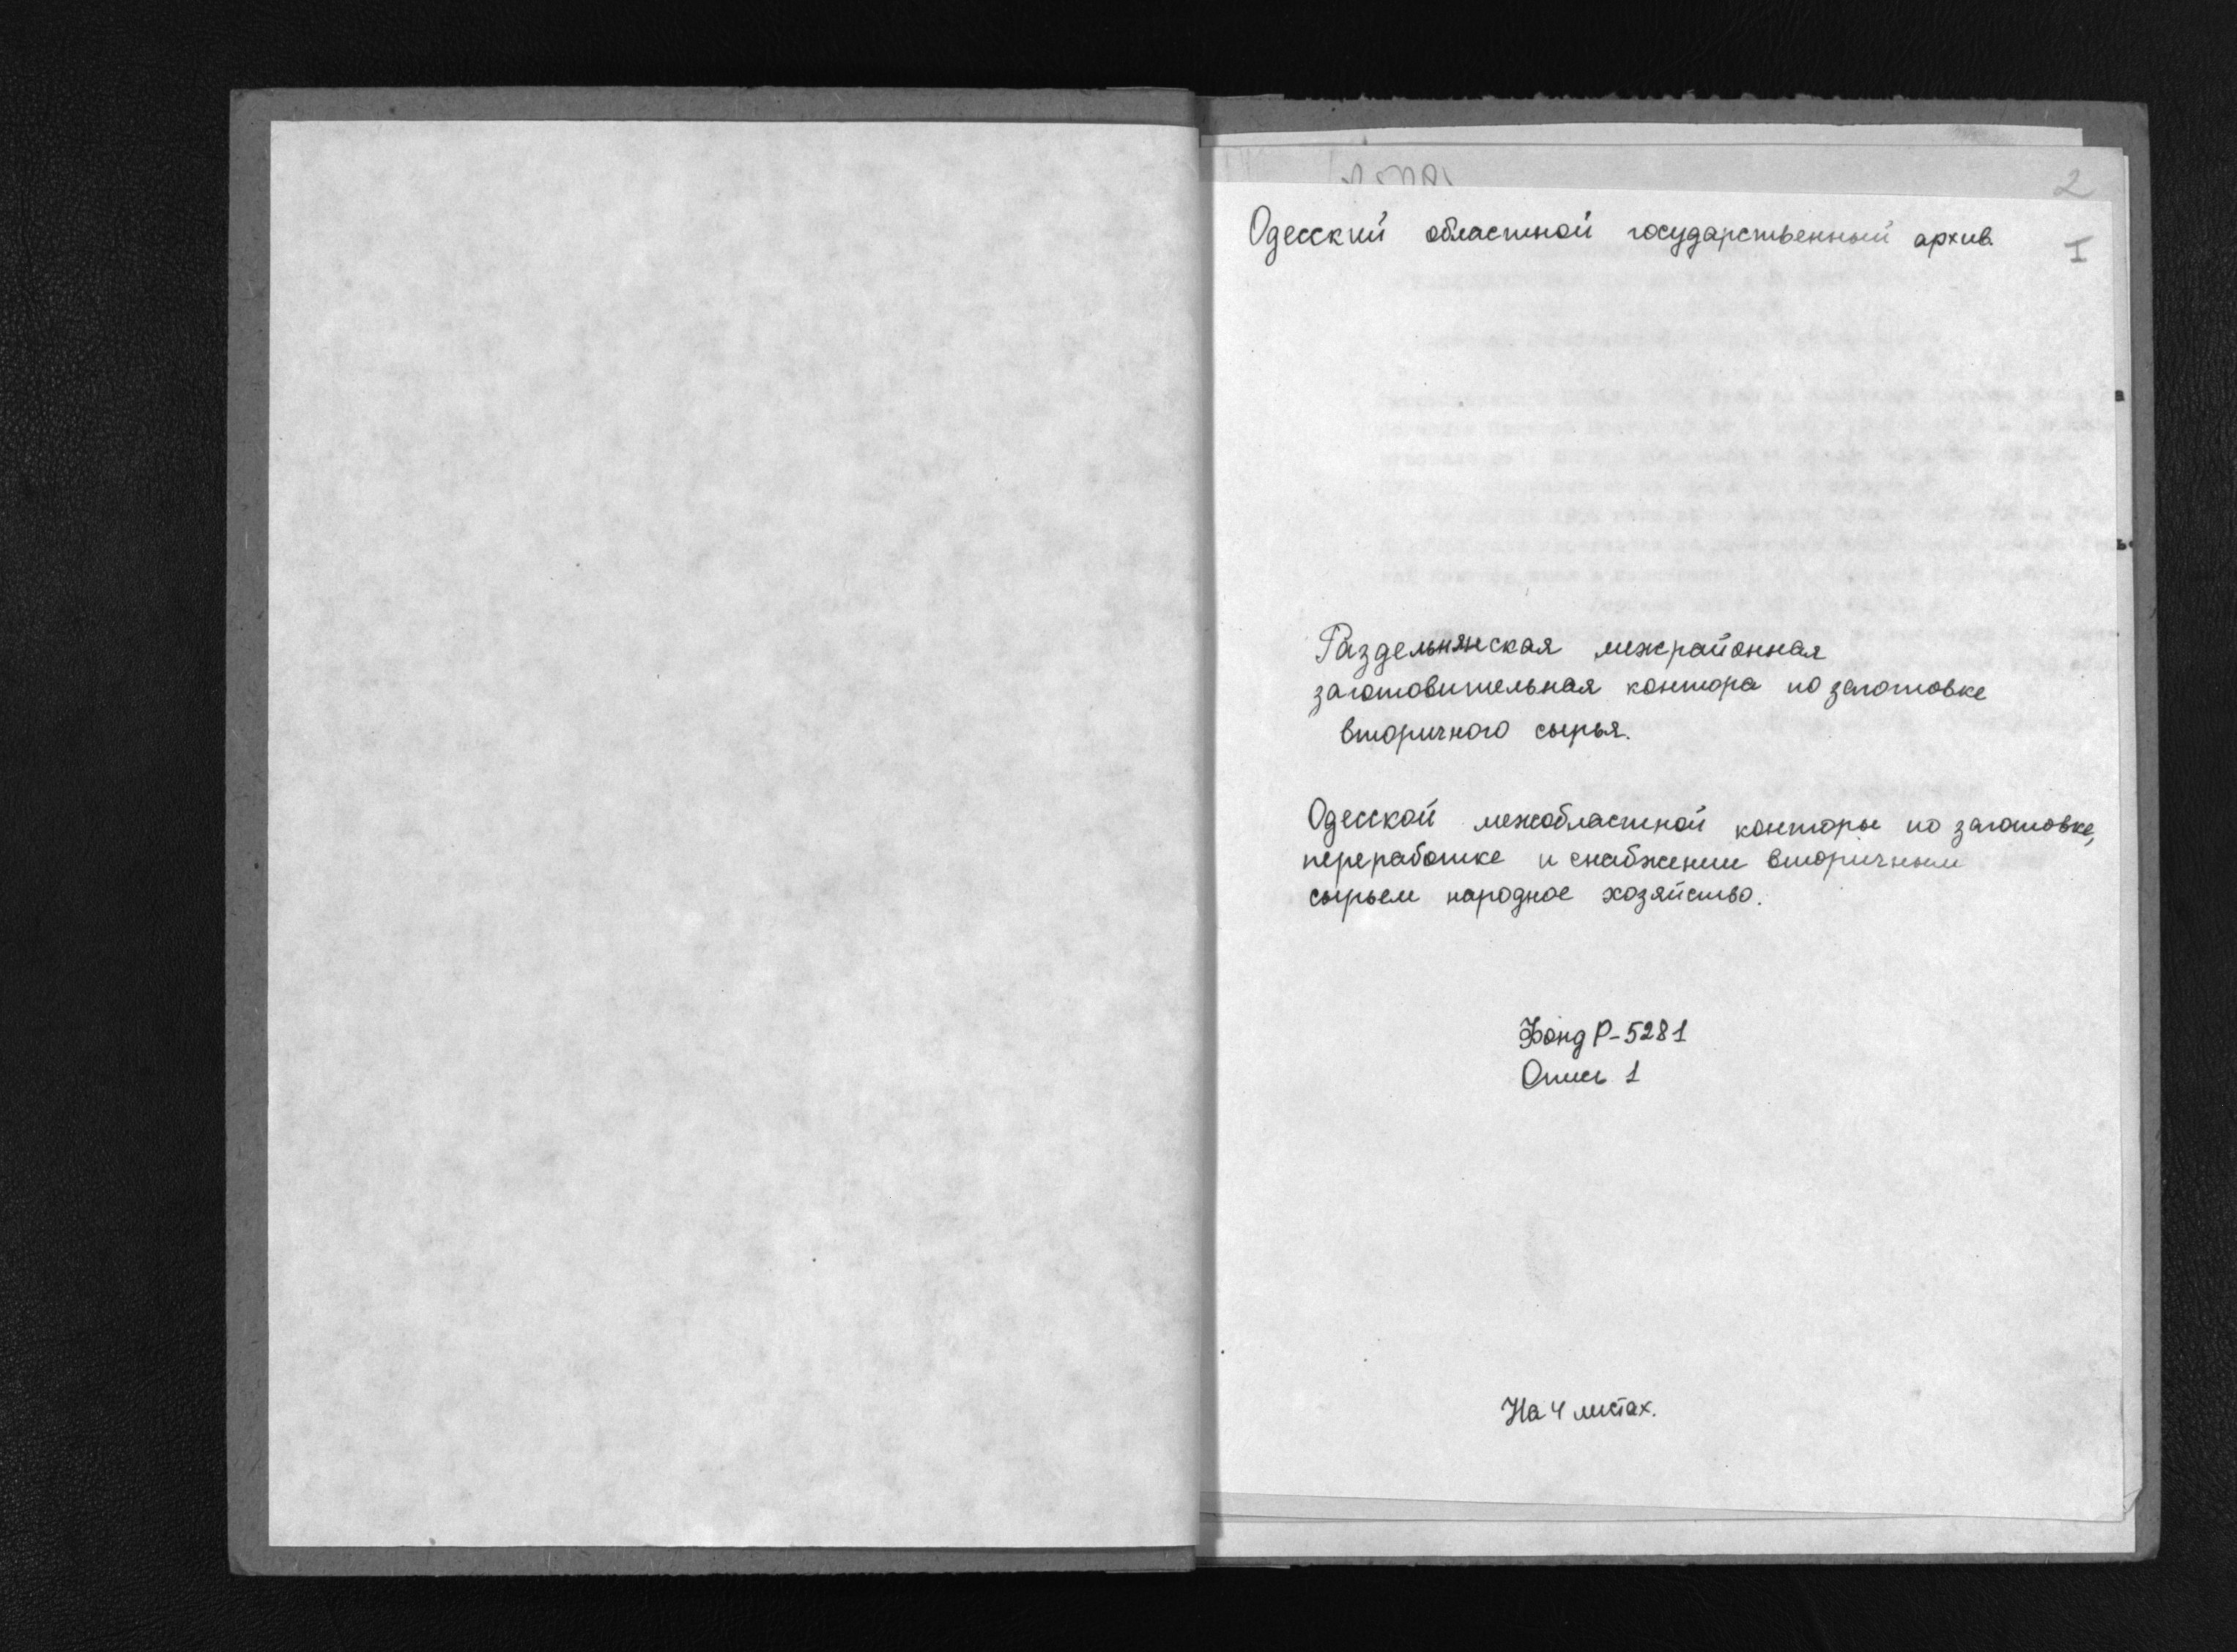 2
Одесский областной государственный архив.
I
Раздельнянская межрайонная
заготовительная контора по заготовке
вторичного сырья.
Одесской межобластной конторы по заготовке,
переработке и снабжении вторичным
сырьем народное хозяйство.
Фонд Р-5281
Опись 1
На 4 листах.